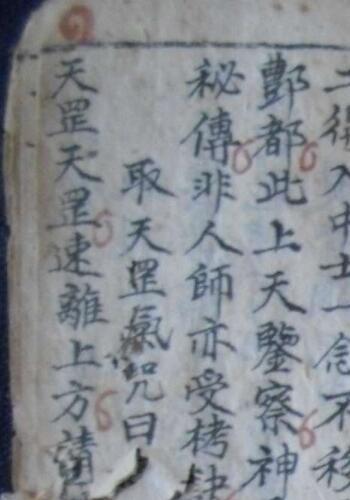 得入中士一念不移
酆都此上天鑒察神
秘傳非人師亦受栲
取天罡氣咒曰
天罡天罡速離上方請